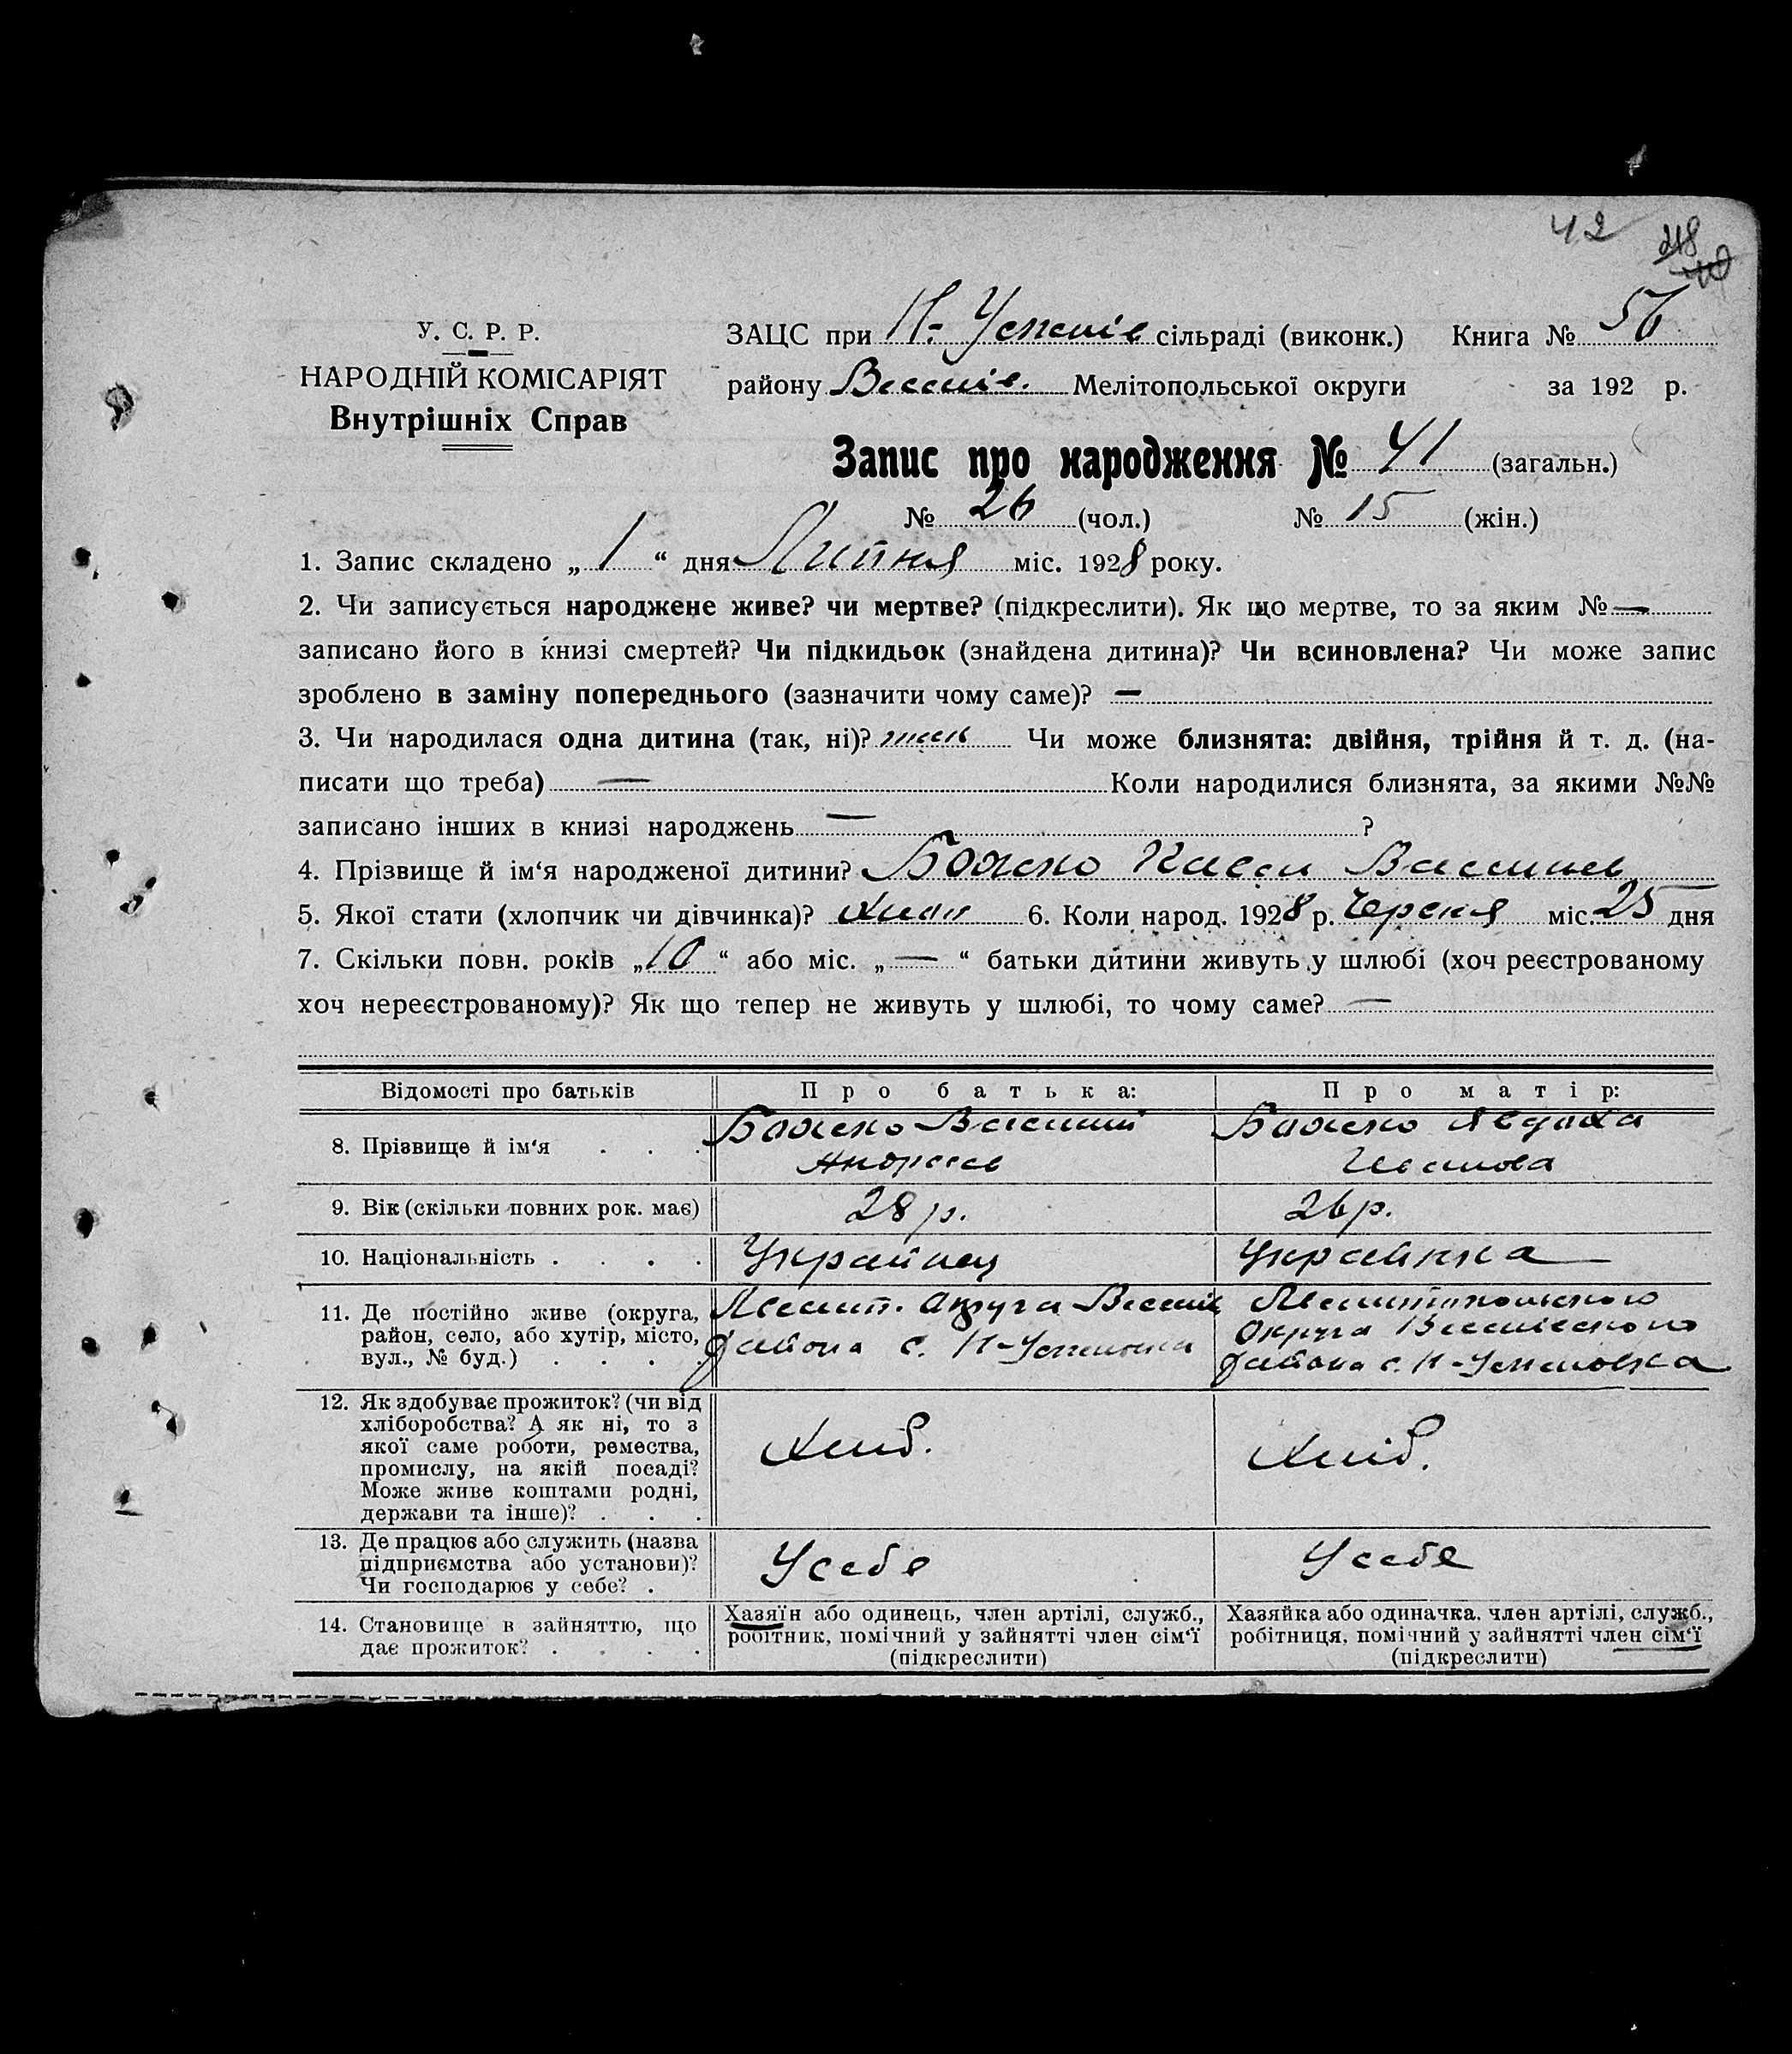 42
218
У. С. Р. Р.
НАРОДНІЙ КОМІСАРІЯТ
Внутрішніх Справ
ЗАЦС при Н-Успенів сільраді (виконк.) Книга № 56
району Веселів. Мелітопольської округи за 192 р.
Запис про народження № 41 (загальн.)
№ 26 (чол.) № 15 (жін.)
1. Запис складено „ 1 “ дня Липня міс. 1928 року.
2. Чи записується народжене живе? чи мертве? (підкреслити). Як що мертве, то за яким № —
записано його в книзі смертей? Чи підкидьок (знайдена дитина)? Чи всиновлена? Чи може запис
зроблено в заміну попереднього (зазначити чому саме)? —
3. Чи народилася одна дитина (так, ні)? Чи може близнята: двійня, трійня й т. д. (на-
писати що треба) — Коли народилися близнята, за якими №№
записано інших в книзі народжень — ?
4. Прізвище й ім‘я народженої дитини? Божко Василів
5. Якої стати (хлопчик чи дівчинка)? хлоп 6. Коли народ. 1928 р. Червня міс. 25 дня
7. Скільки повн. років „ 10 “ або міс. „ — “ батьки дитини живуть у шлюбі (хоч реєстрованому
хоч нереєстрованому)? Як що тепер не живуть у шлюбі, то чому саме? —
Відомості про батьків Про батька: Про матір:
8. Прізвище й ім‘я . . . Божко Василий Андреев Божко Явдоха Иванова
9. Вік (скільки повних рок. має) 28 р. 26 р.
10. Національність . . . . Украйнец Украинка
11. Де постійно живе (округа, район, село, або хутір, місто, вул., № буд.) . . . . Мелит. Округа Веселів района с. Н-Успеновка Мелитопольского Округа Веселівского района с. Н-Успеновка
12. Як здобуває прожиток? (чи від хліборобства? А як ні, то з якої саме роботи, ремества, промислу, на якій посаді? Може живе коштами родні, держави та інше)? . . . Хліб. Хліб.
13. Де працює або служить (назва підприємства або установи)? Чи господарює у себе? . У себе У себе
14. Становище в зайняттю, що дає прожиток? . . . . Хазяїн або одинець, член артілі, служб., робітник, помічний у зайнятті член сім‘ї (підкреслити) Хазяйка або одиначка, член артілі, служб., робітниця, помічний у зайнятті член сім‘ї (підкреслити)